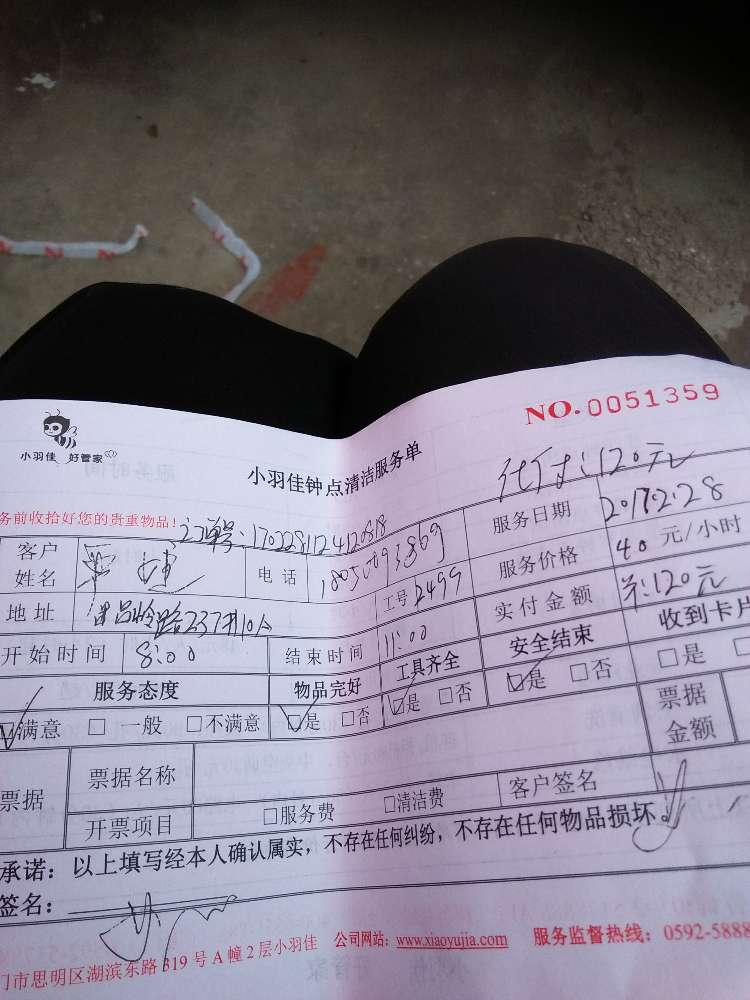 NO.0051359
小羽佳 好管家
小羽佳钟点清洁服务单
代付:120元
务前收拾好您的贵重物品!
订单号:170228112412818
客户姓名 电话 服务日期 2017.2.28
工号 2499 服务价格 40 元/小时
地址 237#10A 实付金额 120元
开始时间 8:00 结束时间 11:00 安全结束 收到卡片
服务态度 物品完好 工具齐全 □是 □否 □是
□满意 □一般 □不满意 □是 □否 □是 □否
票据 票据名称 票据金额
开票项目 □服务费 □清洁费 客户签名
承诺:以上填写经本人确认属实,不存在任何纠纷,不存在任何物品损坏。
签名:
门市思明区湖滨东路319号A幢2层小羽佳 公司网站:www.xiaoyujia.com 服务监督热线:0592-5888